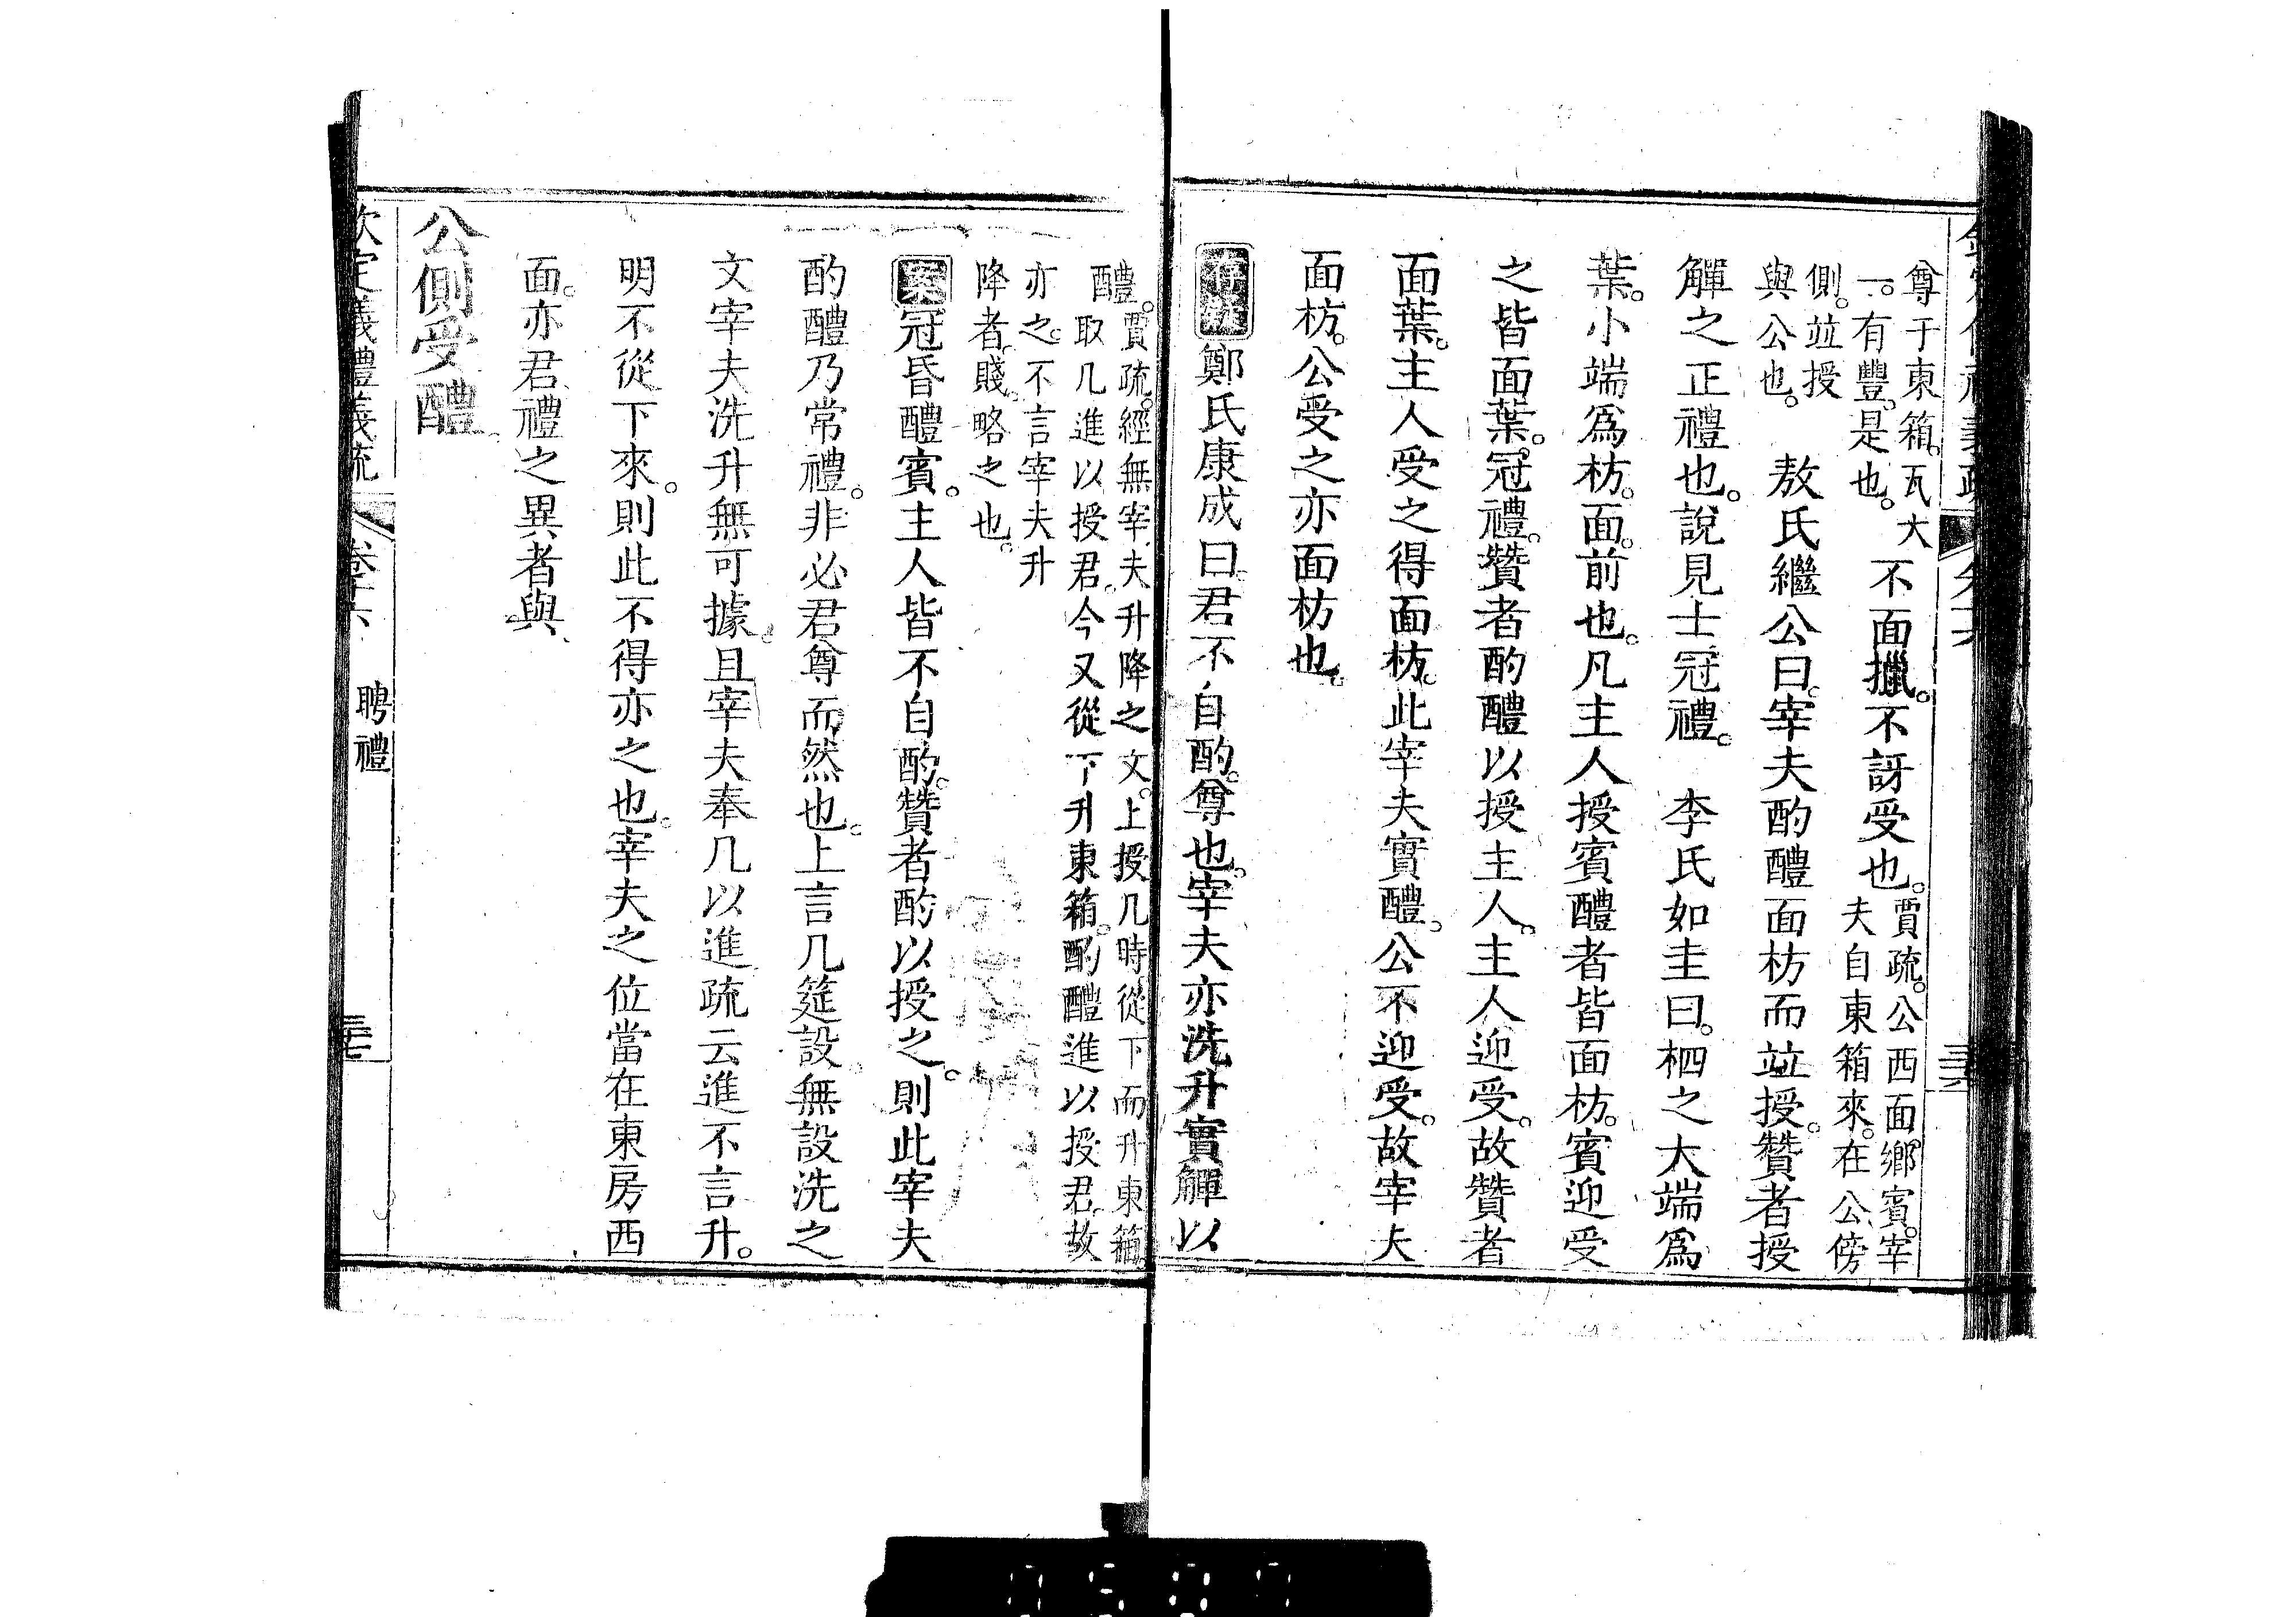 尊于東箱。瓦大
一。有豐。是也。
不面擸。不訝受也。
賈疏。公西面鄉賓。宰
夫自東箱來。在公傍
側。竝授
與公也。
敖氏繼公曰。宰夫酌醴面枋而竝授。贊者授
觶之正禮也。說見士冠禮。 李氏如圭曰。柶之大端爲
葉。小端爲枋。面。前也。凡主人授賓醴者皆面枋。賓迎受
之皆面葉。冠禮。贊者酌醴以授主人。主人迎受。故贊者
面葉。主人受之得面枋。此宰夫實醴。公不迎受。故宰夫
面枋。公受之亦面枋也。
鄭氏康成曰。君不自酌。尊也。宰夫亦洗升實觶以
醴。賈疏。經無宰夫升降之文。上授几時從下而升東箱
取几進以授君。今又從下升東箱。酌醴進以授君。故
亦之。不言宰夫升
降者。賤。略之也。
案冠昏醴賓。主人皆不自酌。贊者酌以授之。則此宰夫
酌醴乃常禮。非必君尊而然也。上言几筵設。無設洗之
文宰夫洗升無可據。且宰夫奉几以進疏云進不言升。
明不從下來。則此不得亦之也。宰夫之位當在東房西
面。亦君禮之異者與。
公側受醴。
欽定儀禮義疏 卷十六 聘禮